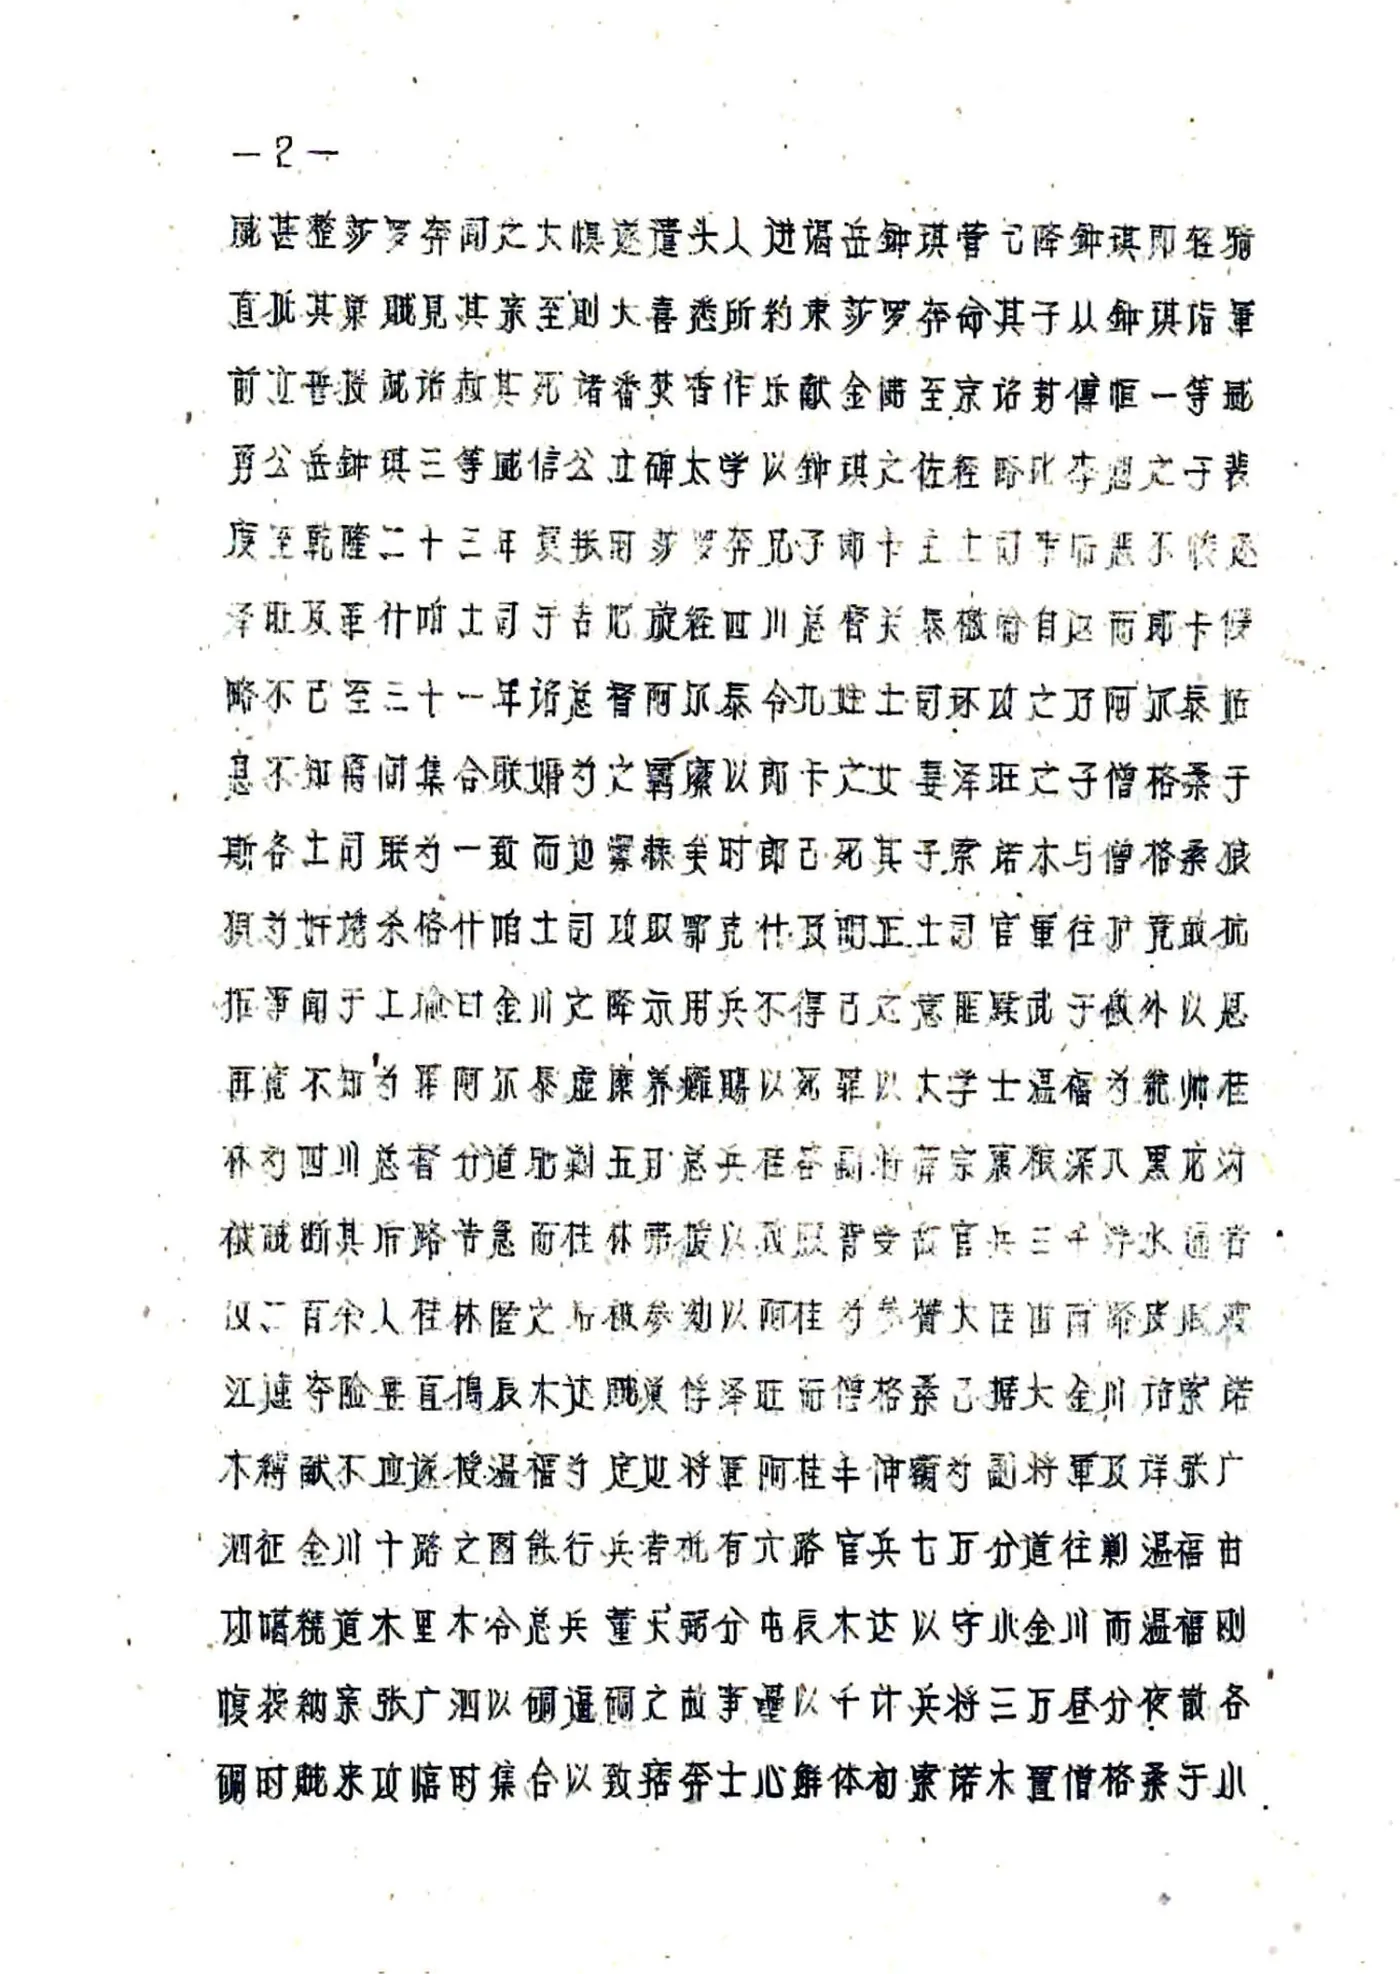 —2—
威甚整莎罗奔闻之大惧遂遣头人进谒岳钟琪营乞降钟琪即轻骑
直抵其巢贼见其亲至则大喜悉所约束莎罗奔命其子从钟琪诣军
前立誓授诚诏赦其死诸番焚香作乐献金佛至京诏封傅恒一等威
勇公岳钟琪三等威信公立碑太学以钟琪之佐经略比李愬之于裴
度至乾隆二十三年莫扱时莎罗奔兄子郎卡主土司事后恶不悛逐
泽旺及革什咱土司于吉地旋经四川总督关泰檄喻自返而郎卡侵
略不已至三十一年诏总督阿尔泰令九姓土司环攻之乃阿尔泰姑
息不知离间集合联婚为之羁縻以郎卡之女妻泽旺之子僧格桑于
斯各土司联为一致而边衅棘矣时郎已死其子索诺木与僧格桑狼
狈为奸诱杀格什咱土司攻取鄂克什及明正土司官军往护竟敢抗
拒事闻于上谕曰金川之降示用兵不得已之意匪黩武于徼外以恩
再宽不知为罪阿尔泰虚糜养痈赐以死罪以大学士温福为统帅桂
林为四川总督分道驰剿五月总兵桂容副将薛宗禀狠深入黑龙沟
被贼断其后路告急而桂林弗援以致腹背受敌官兵三千浮水通者
仅二百余人桂林隆之后被参劾以阿桂为参赞大臣由南路皮船渡
江连夺险要直捣辰木达贼巢俘泽旺而僧格桑已据大金川诏索诺
木缚献不应遂授温福为定边将军阿桂丰伸额为副将军及详张广
泗征金川十路之图能行兵者机有六路官兵七万分道往剿温福由
功噶梳道木里木令总兵董天弼分屯辰木达以守小金川而温福刚
愎袭纳亲张广泗以碉逼碉之故事垒以千计兵将三万昼分夜散各
碉时贼来攻临时集合以致痞奔士心解体初索诺木置僧格桑于小